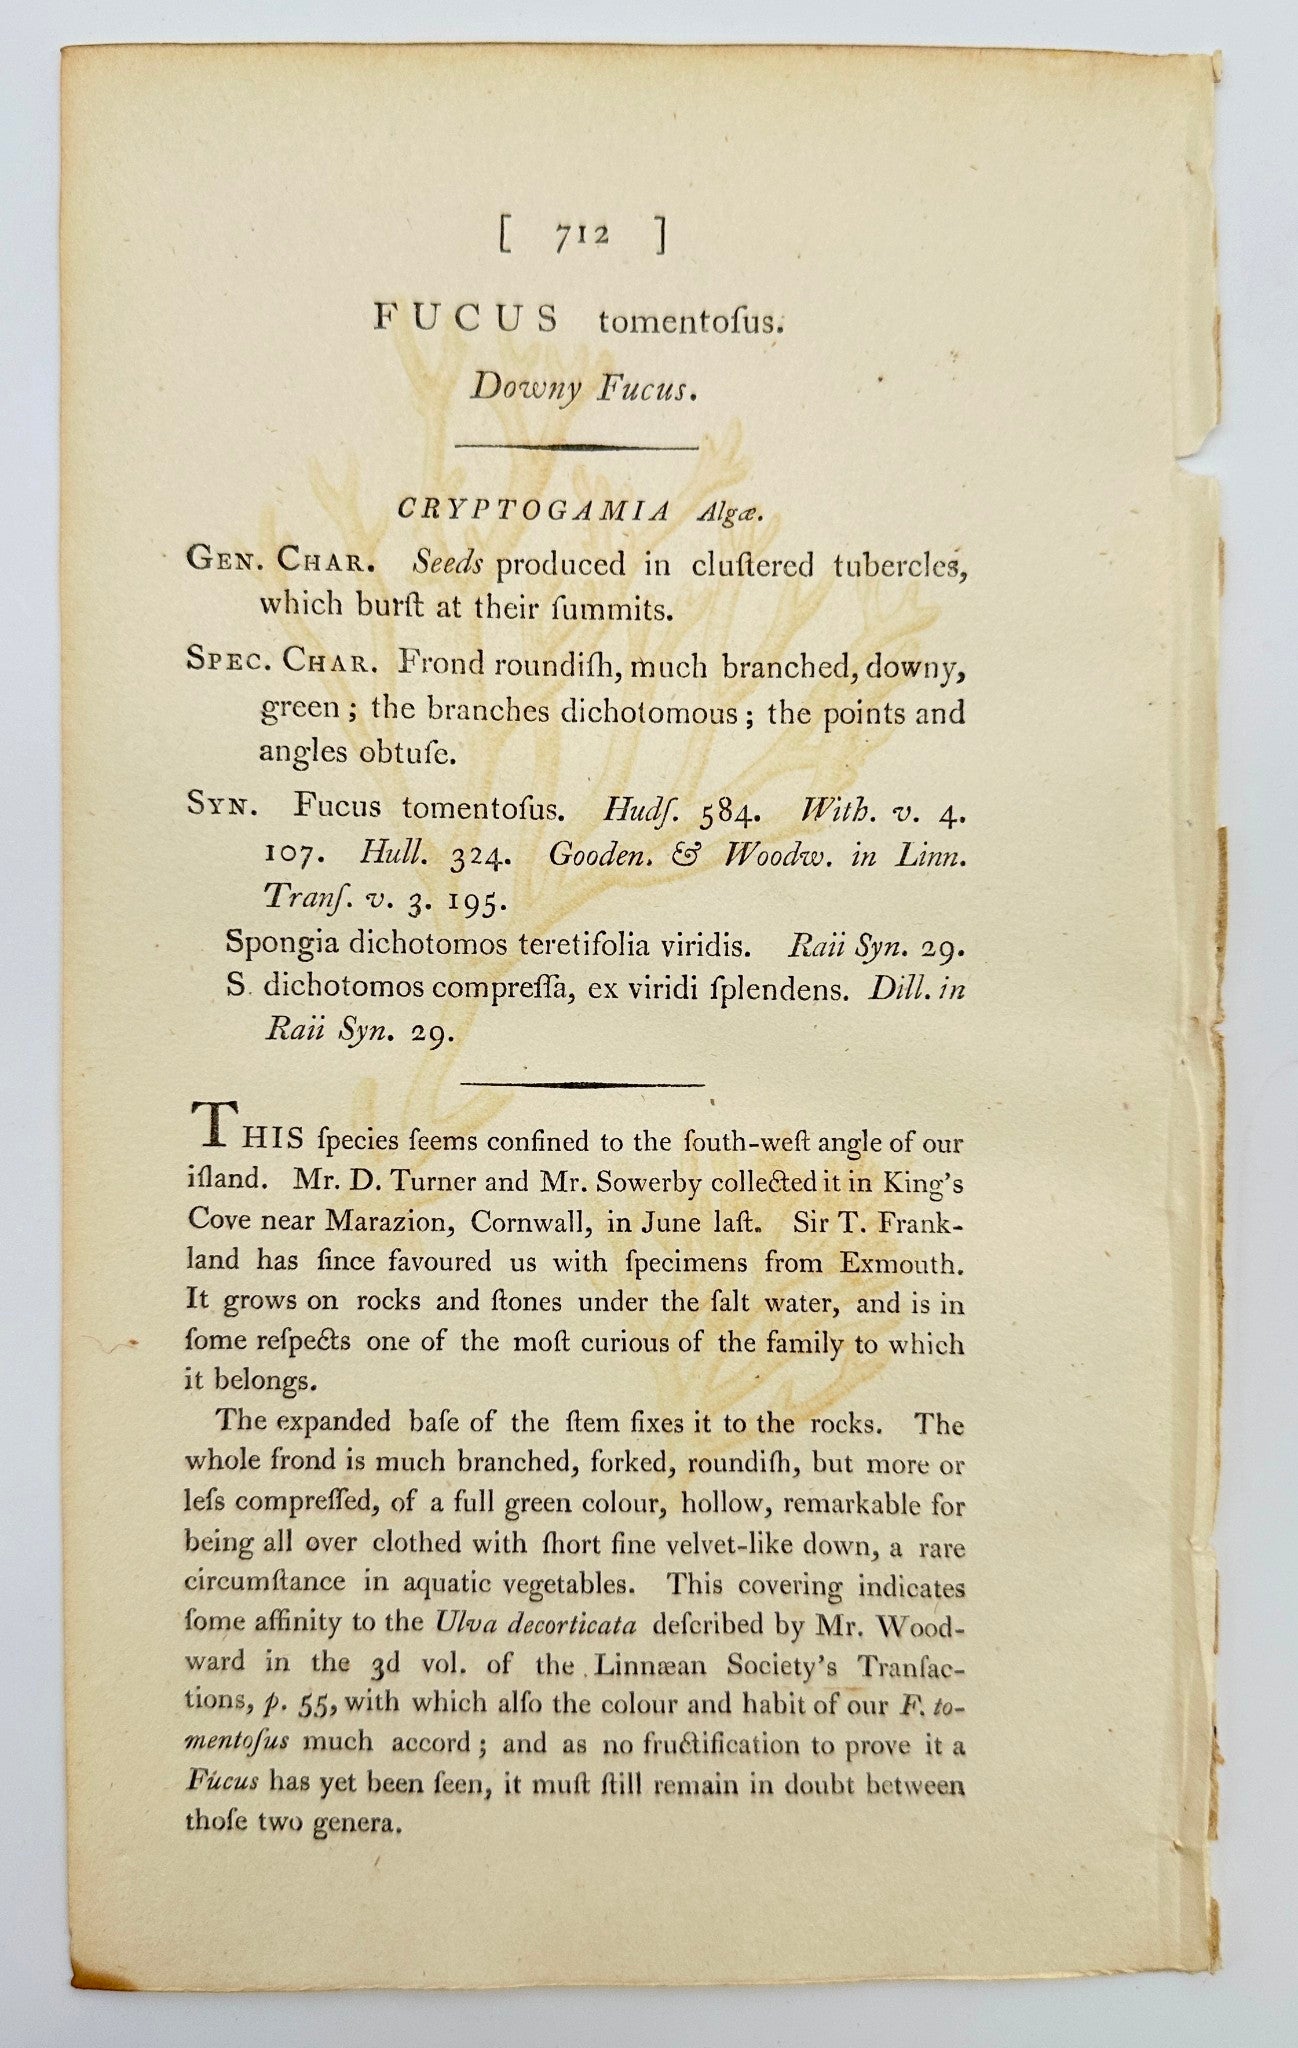 [ 712 ]
FUCUS tomentoſus.
Downy Fucus.
CRYPTOGAMIA Algæ.
GEN. CHAR. Seeds produced in cluſtered tubercles,
which burſt at their ſummits.
SPEC. CHAR. Frond roundiſh, much branched, downy,
green; the branches dichotomous; the points and
angles obtuſe.
SYN. Fucus tomentoſus. Hudſ. 584. With. v. 4.
107. Hull. 324. Gooden. & Woodw. in Linn.
Tranſ. v. 3. 195.
Spongia dichotomos teretifolia viridis. Raii Syn. 29.
S. dichotomos compreſſa, ex viridi ſplendens. Dill. in
Raii Syn. 29.
THIS ſpecies ſeems confined to the ſouth-weſt angle of our
iſland. Mr. D. Turner and Mr. Sowerby collected it in King's
Cove near Marazion, Cornwall, in June laſt. Sir T. Frank-
land has ſince favoured us with ſpecimens from Exmouth.
It grows on rocks and ſtones under the ſalt water, and is in
ſome reſpects one of the moſt curious of the family to which
it belongs.
The expanded baſe of the ſtem fixes it to the rocks. The
whole frond is much branched, forked, roundiſh, but more or
leſs compreſſed, of a full green colour, hollow, remarkable for
being all over clothed with ſhort fine velvet-like down, a rare
circumſtance in aquatic vegetables. This covering indicates
ſome affinity to the Ulva decorticata deſcribed by Mr. Wood-
ward in the 3d vol. of the Linnæan Society's Tranſac-
tions, p. 55, with which alſo the colour and habit of our F. to-
mentoſus much accord; and as no fructification to prove it a
Fucus has yet been ſeen, it muſt ſtill remain in doubt between
thoſe two genera.